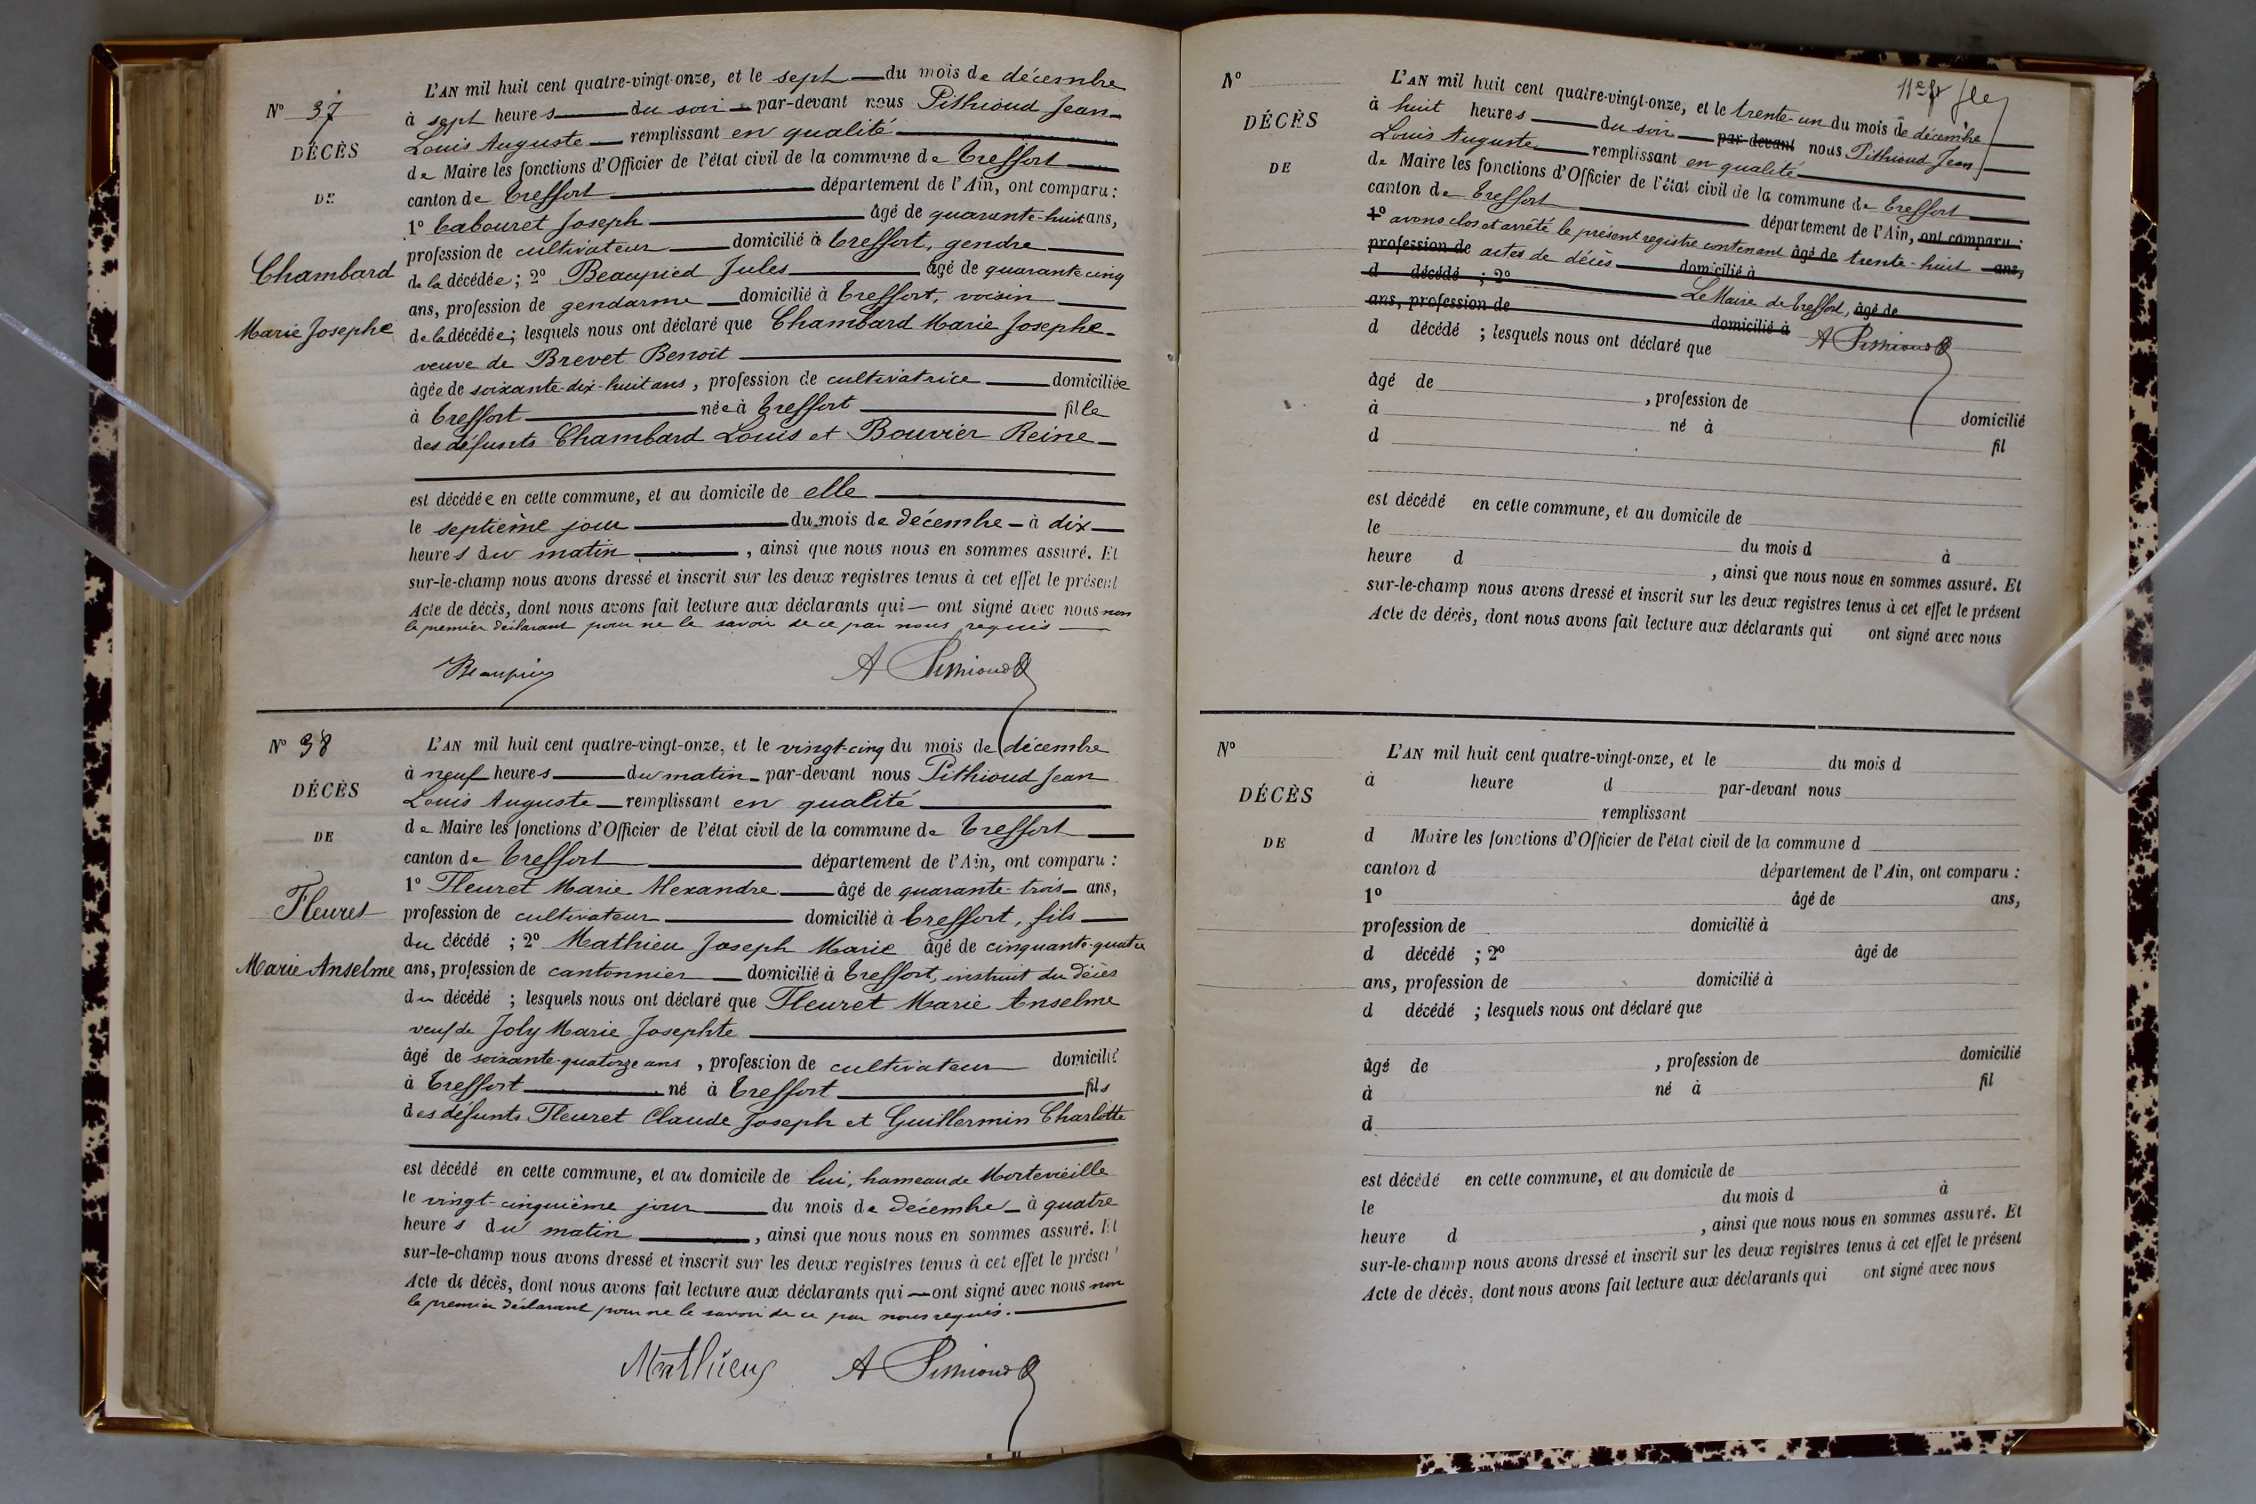 N° 37
DÉCÈS
DE
Chambard
Marie Josephe
L'AN mil huit cent quatre-vingt-onze, et le sept du mois de décembre
à sept heures du soir par-devant nous Pithioud Jean
Louis Auguste remplissant en qualité
de Maire les fonctions d'Officier de l'état civil de la commune de Treffort
canton de Treffort département de l'Ain, ont comparu :
1° Tabouret Joseph âgé de quarante-huit ans,
profession de cultivateur domicilié à Treffort, gendre
de la décédée ; 2° Beaupied Jules âgé de quarante cinq
ans, profession de gendarme domicilié à Treffort, voisin
de la décédée ; lesquels nous ont déclaré que Chambard Marie Josephe
veuve de Brevet Benoît
âgée de soixante-dix-huit ans, profession de cultivatrice domiciliée
à Treffort née à Treffort fille
des défunts Chambard Louis et Bouvier Reine
est décédée en cette commune, et au domicile de elle
le septième jour du mois de décembre à dix
heures du matin, ainsi que nous nous en sommes assuré. Et
sur-le-champ nous avons dressé et inscrit sur les deux registres tenus à cet effet le présent
Acte de décès, dont nous avons fait lecture aux déclarants qui ont signé avec nous non
le premier déclarant pour ne le savoir de ce par nous requis
Beaupied A Pithioud
N° 38
DÉCÈS
DE
Fleuret
Marie Anselme
L'AN mil huit cent quatre-vingt-onze, et le vingt-cinq du mois de décembre
à neuf heures du matin par-devant nous Pithioud Jean
Louis Auguste remplissant en qualité
de Maire les fonctions d'Officier de l'état civil de la commune de Treffort
canton de Treffort département de l'Ain, ont comparu :
1° Fleuret Marie Alexandre âgé de quarante-trois ans,
profession de cultivateur domicilié à Treffort, fils
du décédé ; 2° Mathieu Joseph Marie âgé de cinquante-quatre
ans, profession de cantonnier domicilié à Treffort, instruit du décès
du décédé ; lesquels nous ont déclaré que Fleuret Marie Anselme
veuf de Joly Marie Josephte
âgé de soixante-quatorze ans, profession de cultivateur domicilié
à Treffort né à Treffort fils
des défunts Fleuret Claude Joseph et Guillermin Charlotte
est décédé en cette commune, et au domicile de lui, hameau de Mortevieille
le vingt-cinquième jour du mois de décembre à quatre
heures du matin, ainsi que nous nous en sommes assuré. Et
sur-le-champ nous avons dressé et inscrit sur les deux registres tenus à cet effet le présent
Acte de décès, dont nous avons fait lecture aux déclarants qui ont signé avec nous non
le premier déclarant pour ne le savoir de ce par nous requis.
Mathieu A Pithioud
N°
DÉCÈS
DE
L'AN mil huit cent quatre-vingt-onze, et le trente-un du mois de décembre
à huit heures du soir par-devant nous Pithioud Jean
Louis Auguste remplissant en qualité
de Maire les fonctions d'Officier de l'état civil de la commune de Treffort
canton de Treffort département de l'Ain, ont comparu :
1° avons clos et arrêté le présent registre contenant âgé de trente-huit ans,
profession de actes de décès domicilié à
d décédé ; 2° Le Maire de Treffort, âgé de
ans, profession de domicilié à A Pithioud
d décédé ; lesquels nous ont déclaré que
âgé de , profession de domicilié
à né à
d fil
est décédé en cette commune, et au domicile de
le du mois d à
heure d , ainsi que nous nous en sommes assuré. Et
sur-le-champ nous avons dressé et inscrit sur les deux registres tenus à cet effet le présent
Acte de décès, dont nous avons fait lecture aux déclarants qui ont signé avec nous
N°
DÉCÈS
DE
L'AN mil huit cent quatre-vingt-onze, et le du mois d
à heure d par-devant nous
remplissant
d Maire les fonctions d'Officier de l'état civil de la commune d
canton d département de l'Ain, ont comparu :
1° âgé de ans,
profession de domicilié à
d décédé ; 2° âgé de
ans, profession de domicilié à
d décédé ; lesquels nous ont déclaré que
âgé de , profession de domicilié
à né à fil
d
est décédé en cette commune, et au domicile de
le du mois d à
heure d , ainsi que nous nous en sommes assuré. Et
sur-le-champ nous avons dressé et inscrit sur les deux registres tenus à cet effet le présent
Acte de décès, dont nous avons fait lecture aux déclarants qui ont signé avec nous